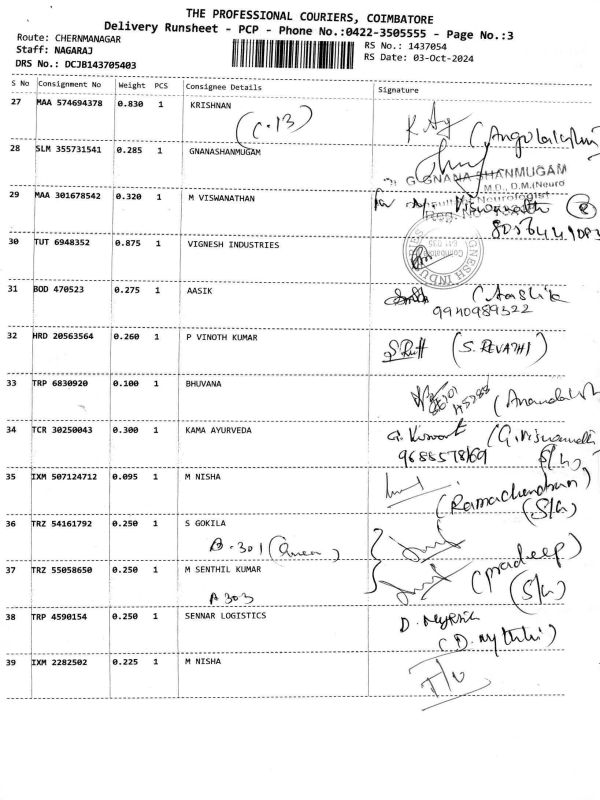 THE PROFESSIONAL COURIERS, COIMBATORE
Delivery Runsheet - PCP - Phone No.:0422-3505555 - Page No.:3
Route: CHERNMANAGAR
RS No.: 1437054
Staff: NAGARAJ
RS Date: 03-Oct-2024
DRS No.: DCJB143705403
S No Consignment No Weight PCS Consignee Details Signature
27 MAA 574694378 0.830 1 KRISHNAN
(C.13)
28 SLM 355731541 0.285 1 GNANASHANMUGAM
G GNANA SHANMUGAM
M.D., D.M.(Neuro
Neurologist
29 MAA 301678542 0.320 1 M VISWANATHAN
30 TUT 6948352 0.875 1 VIGNESH INDUSTRIES
31 BOD 470523 0.275 1 AASIK
(Aashik
9940989322
32 HRD 20563564 0.260 1 P VINOTH KUMAR
(S. REVATHI)
33 TRP 6830920 0.100 1 BHUVANA
34 TCR 30250043 0.300 1 KAMA AYURVEDA
35 IXM 507124712 0.095 1 M NISHA
(Ramachandran)
(S/G)
36 TRZ 54161792 0.250 1 S GOKILA
B-301
37 TRZ 55058650 0.250 1 M SENTHIL KUMAR
(pradeep)
(S/G)
A 303
38 TRP 4590154 0.250 1 SENNAR LOGISTICS
(D. Mythili)
39 IXM 2282502 0.225 1 M NISHA